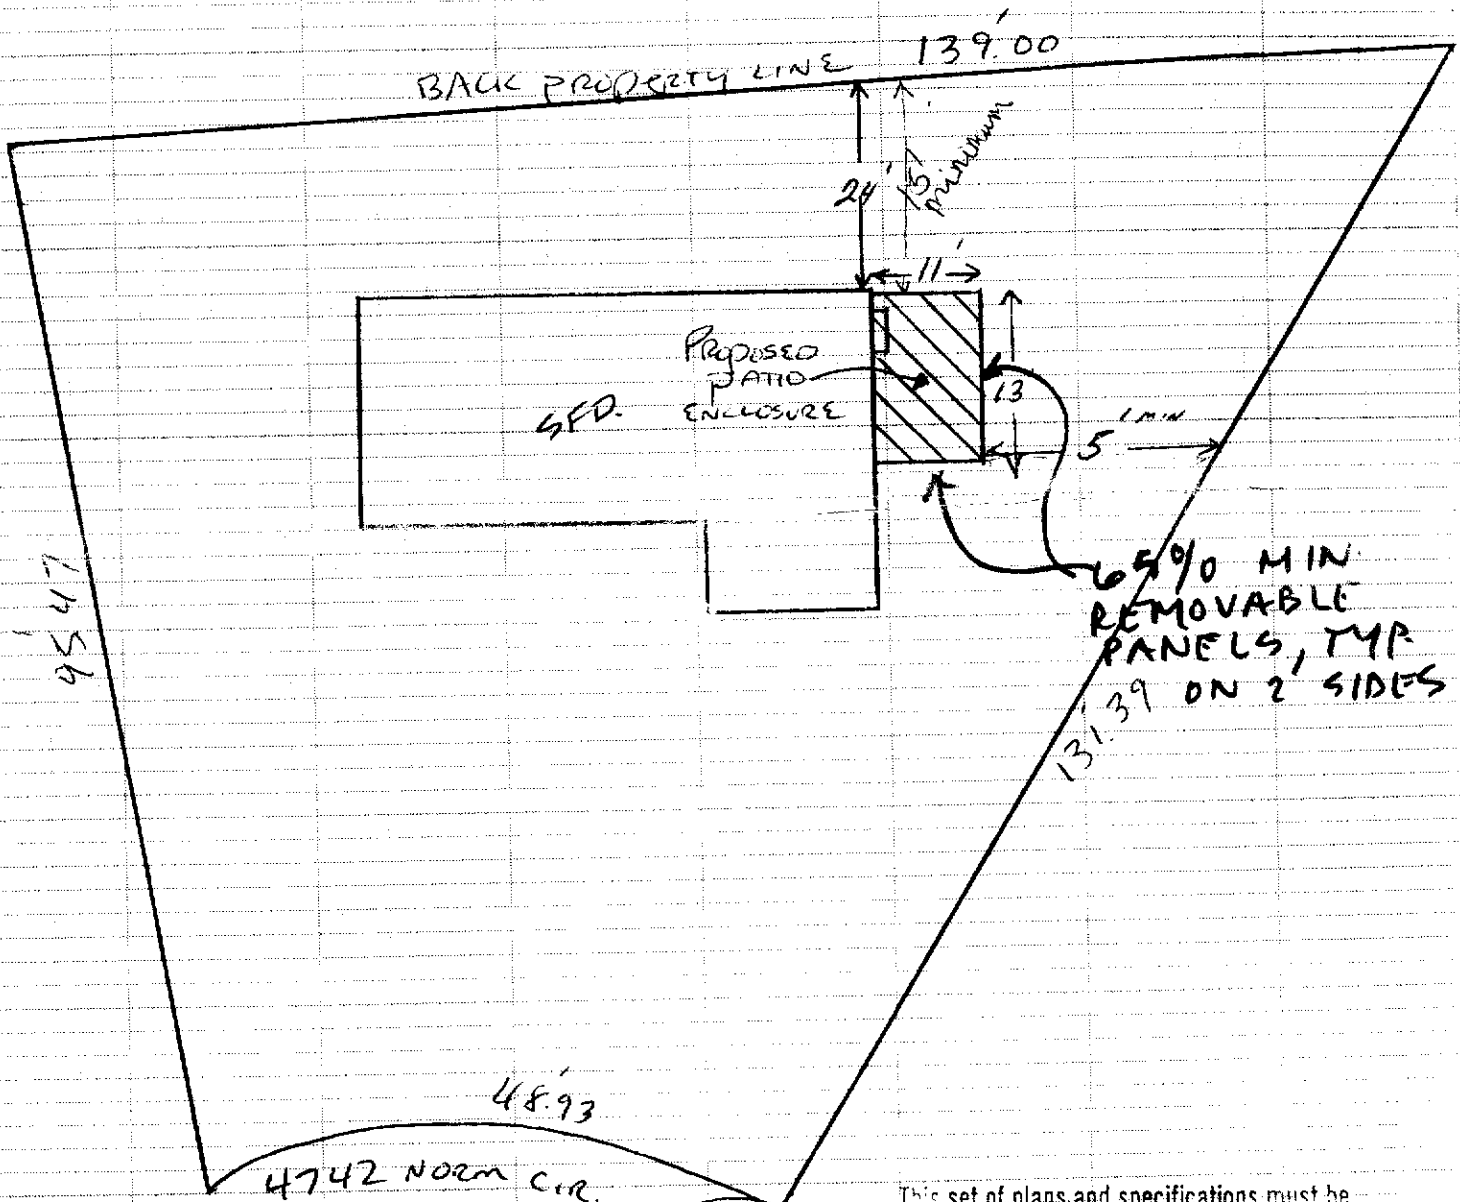 139.00'
BACK PROPERTY LINE
24'
15'
minimum
11'
PROPOSED
PATIO
ENCLOSURE
SFD.
13
5' MIN
65% MIN
REMOVABLE
PANELS, TYP.
ON 2 SIDES
95.47'
131.39'
48.93'
4742 NORM CIR.
This set of plans and specifications must be